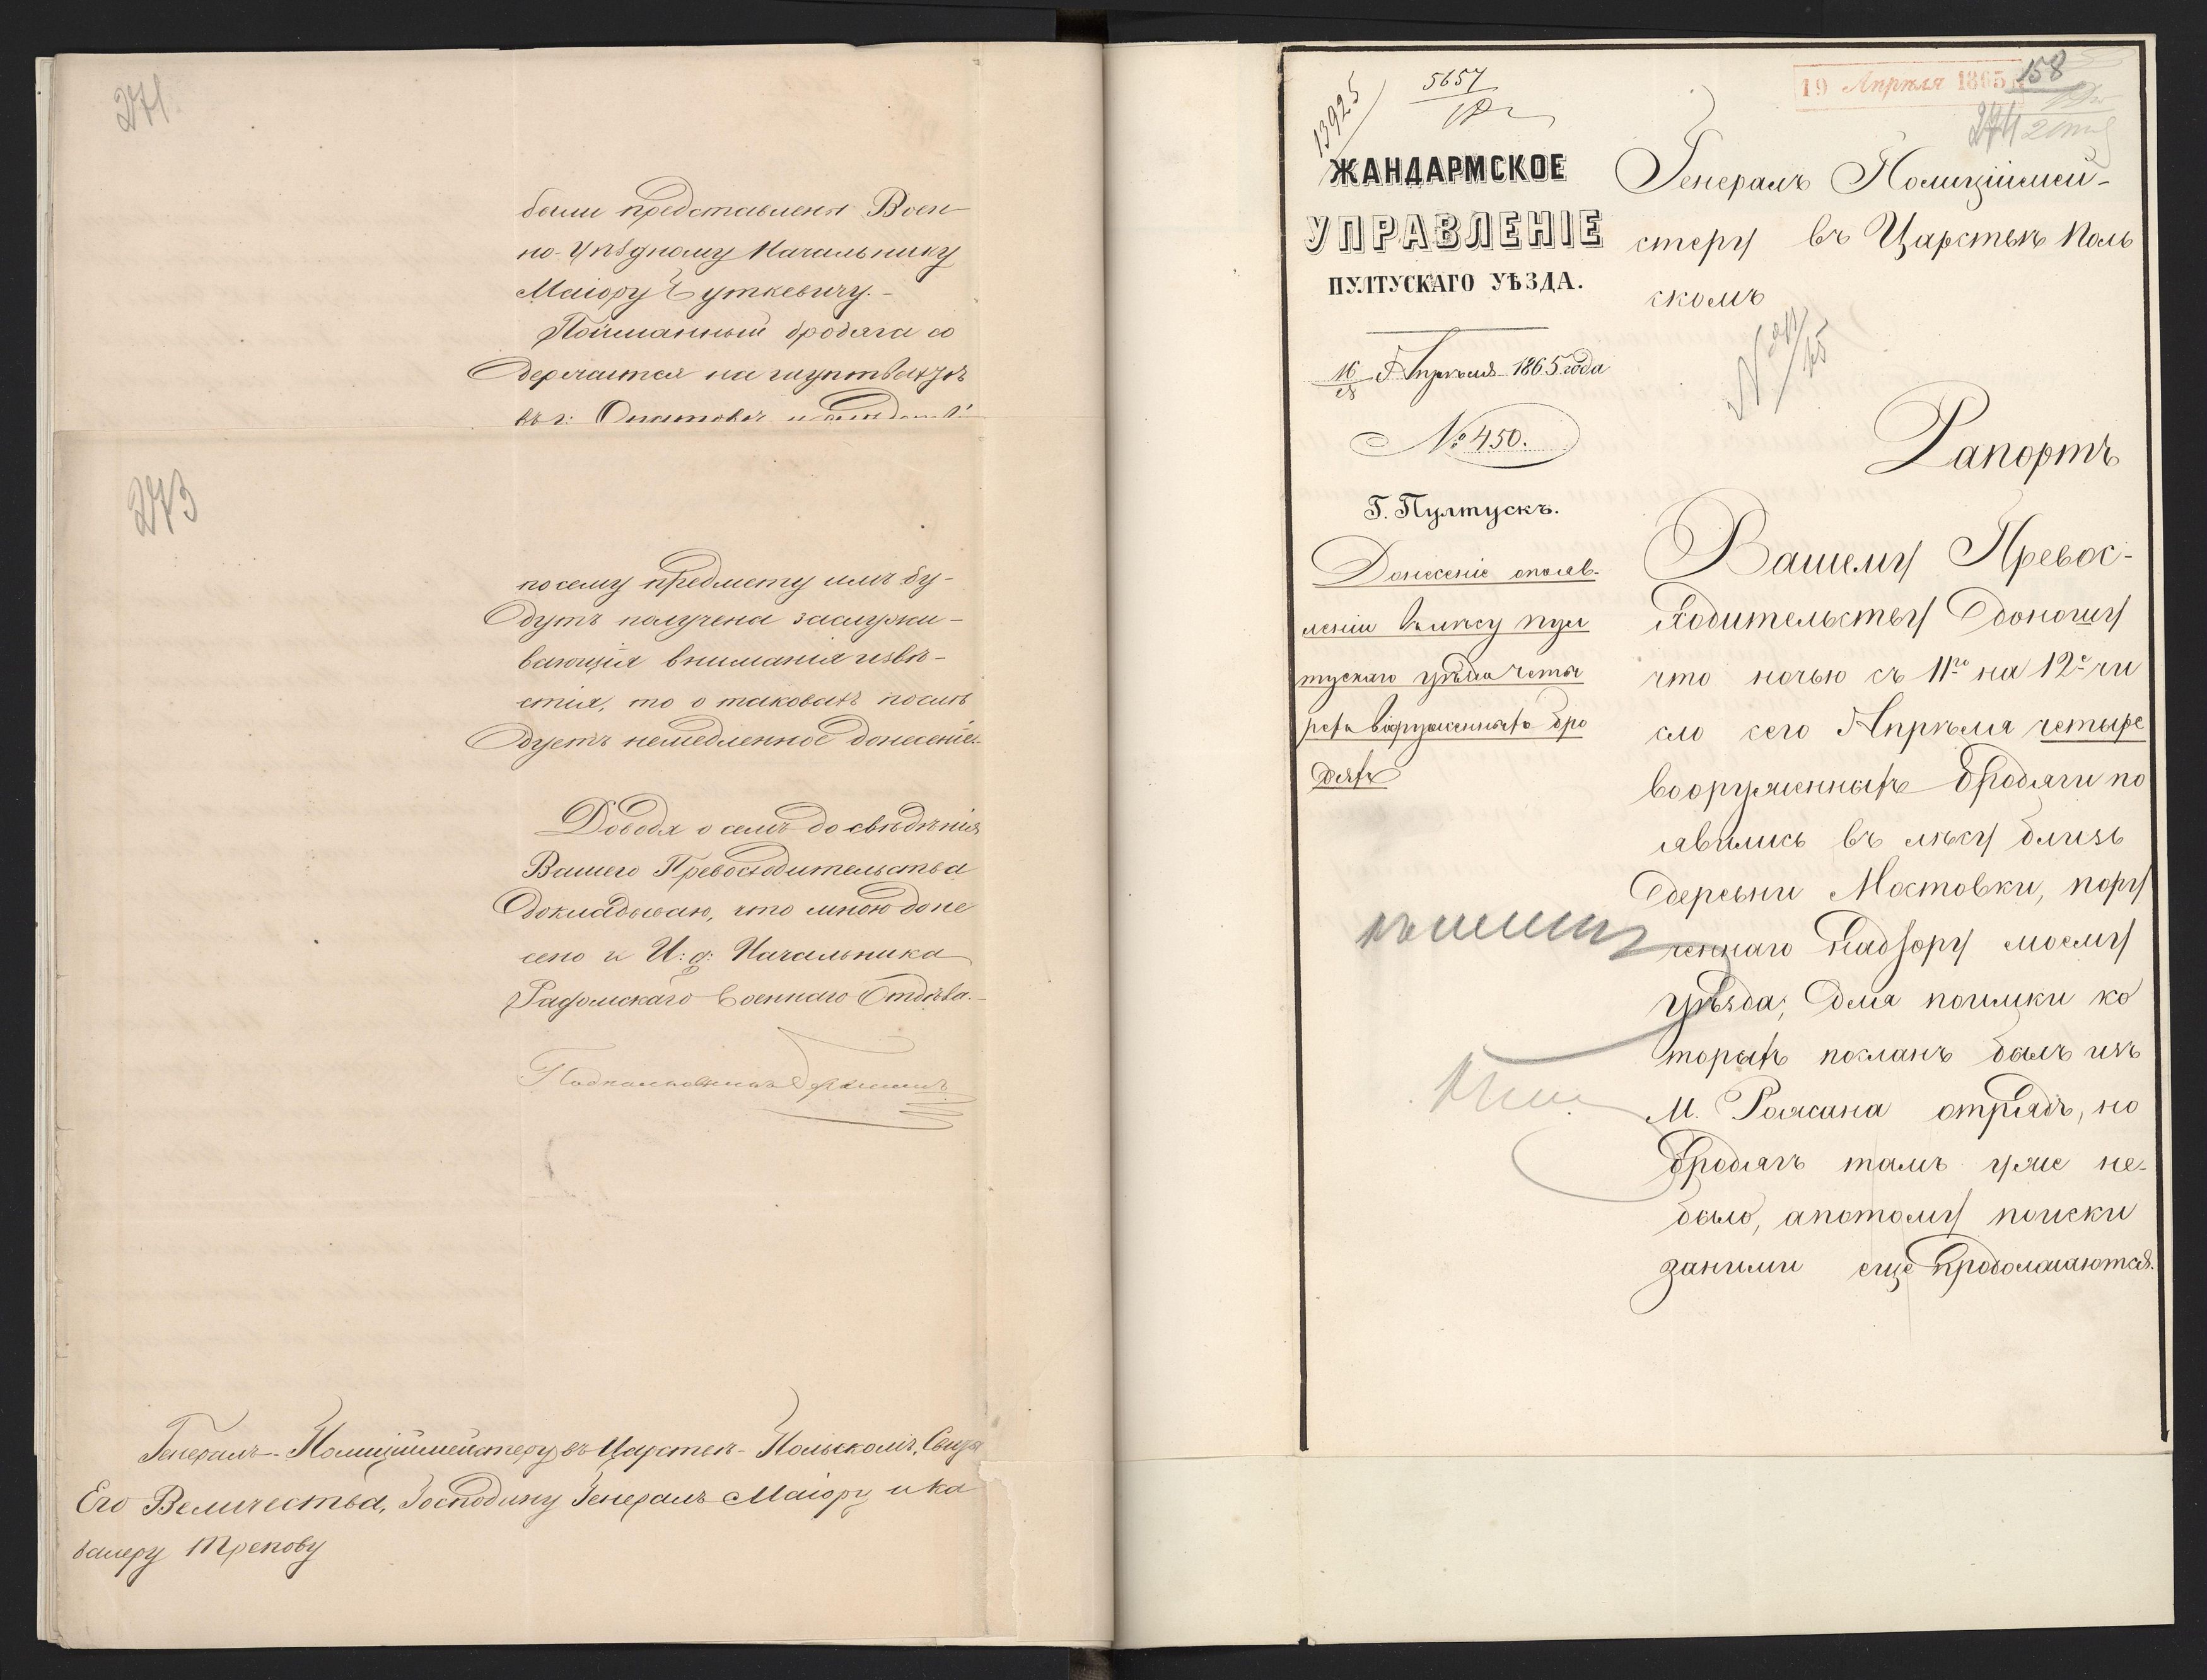 271.
были представлены Воен-
но-Уѣздному Начальнику
Маіору Гуткевичу.-
Пойманный бродяга со
держится на гауптвахтѣ
въ г: Опатовѣ
273
по сему предмету имъ бу-
дутъ получены заслужи-
вающія вниманія извѣ-
стія, то о таковыхъ послѣ
дуетъ немедленное донесеніе.
Доводя о семъ до свѣдѣнія
Вашего Превосходительства
докладываю, что мною доне
сено и И: д: Начальника
Радомскаго Военнаго Отдѣла.-
Подполковникъ
Генералъ-Полиціймейстеру въ Царствѣ-Польскомъ, Свиты
Его Величества, Господину Генералъ Маіору и ка
валеру Трепову
13925
5657
19 Апрѣля 1865
158
274
ЖАНДАРМСКОЕ
УПРАВЛЕНІЕ
ПУЛТУСКАГО УѢЗДА.
16 Апрѣля 1865 года
№ 450.
Г. Пултускъ.
Донесеніе о появ-
леніи въ лѣсу Пул
тускаго уѣзда четы
рехъ вооруженныхъ бро
дягъ
Генералъ Полиціймей-
стеру въ Царствѣ Поль
скомъ
Рапортъ
Вашему Превос-
ходительству доношу
что ночью съ 11го на 12е чи
сло сего Апрѣля четыре
вооруженныхъ бродяги по
явились въ лѣсу близь
деревни Мостовки, пору
ченнаго надзору моему
уѣзда; для поимки ко
торыхъ посланъ былъ изъ
М. Рожана отрядъ, но
бродягъ тамъ уже не-
было, а потому поиски
за ними еще продолжаются.